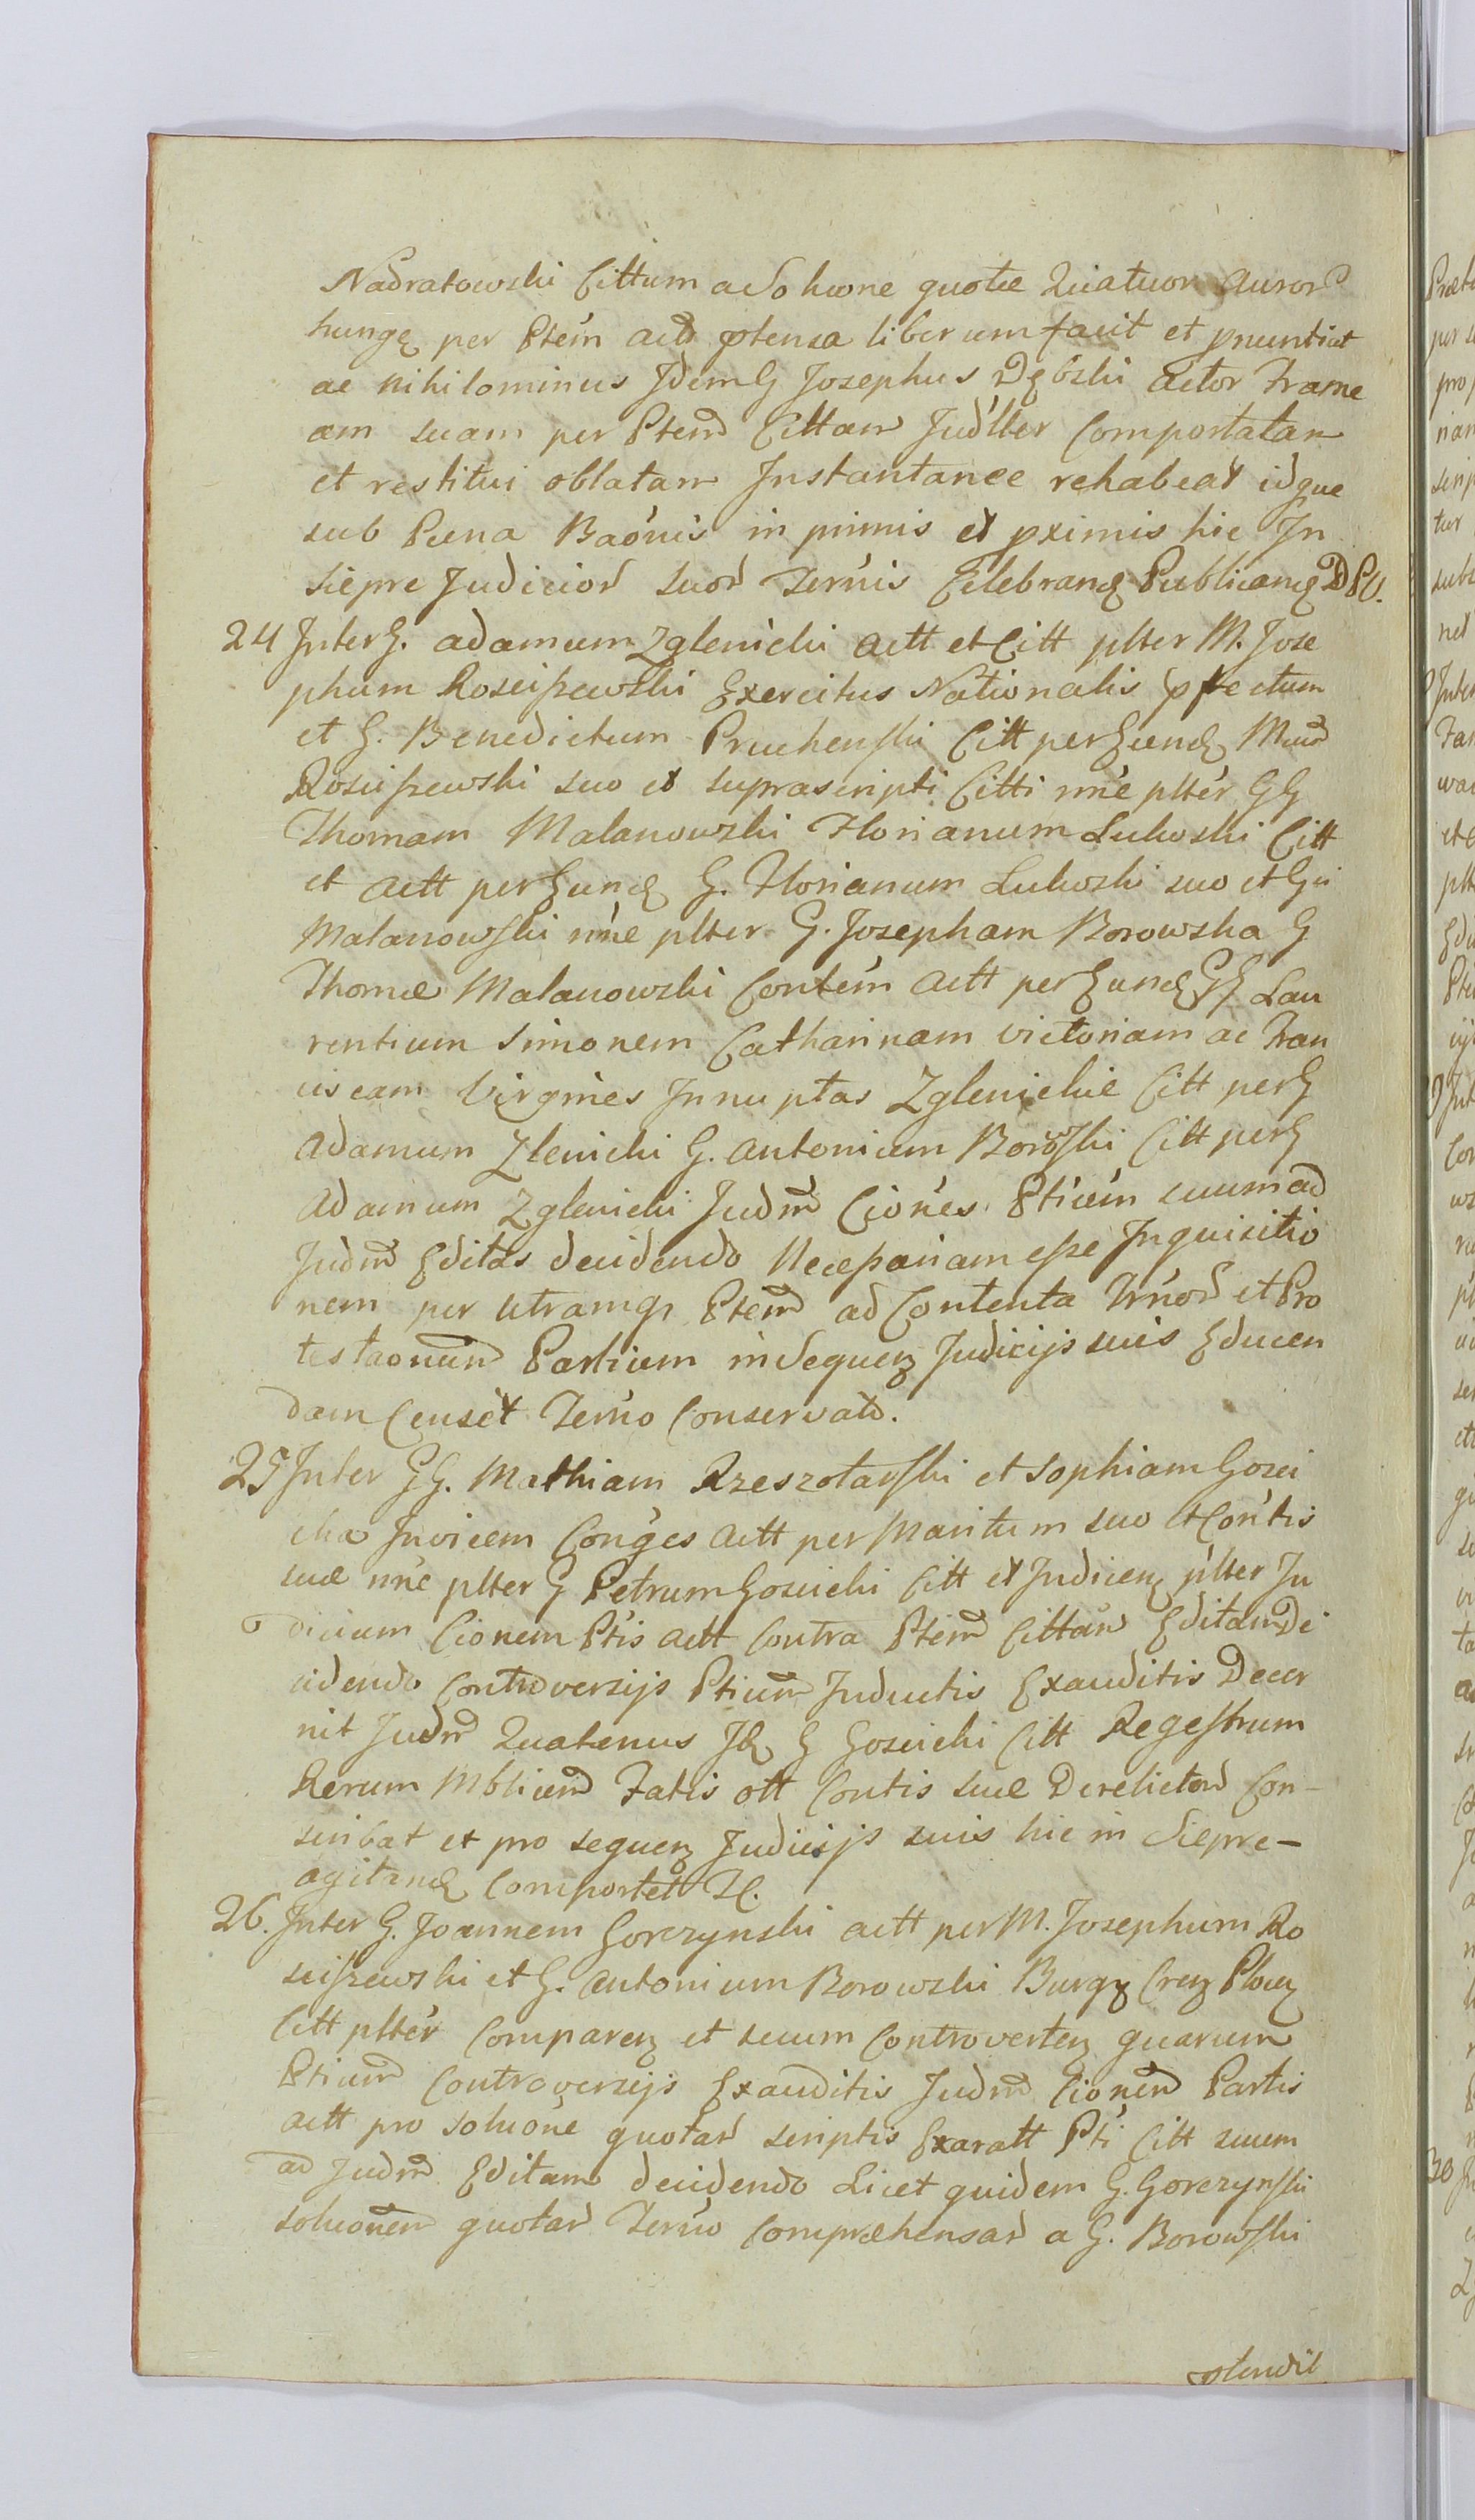 Nadratowski Cittum a Solucione quotæ Quatuor Auror
hungq per Ptem act ptensa liberum facit et pnuntiat
ac nihilominus Idem G Josephus Dębski Actor Frame
am suam per Ptem Cittam Judller Comportatam
et restitui oblatam Instantanee rehabeat idque
sub Pœna Baonis in primis et pximis hic In
Siepre Judicior suor Ternis Celebranq Publicanq DPU.
24 Inter G. Adamum Zglenicki Actt et Citt plter M. Jose
phum Rosciszewski Exercitus Nationalis pfectum
et G. Benedictum Pruchenski Citt per eund Mcum
Rosciszewski suo et suprascripti Citti nne plter GG
Thomam Malanowski Florianum Lukoski Citt
et Actt per eund G. Florianum Lukoski suo et Gri
Malanowski nne plter G. Josepham Borowska G
Thomæ Malanowski Contem Actt per eund GG Lau
rentium Simonem Catharinam Victoriam ac Fran
ciscam Virgines Innuptas Zglenickie Citt per G
Adamum Zlenicki G. Antonium Borowski Citt per G
Adamum Zglenicki Judm Ciones Pticum suum ad
Judm Editas decidendo Necessariam esse Inquisitio
nem per utramq Ptem ad Contenta Trnor et Pro
testaonum Partium in Sequen Judicijs suis Educen
dam Censet Terno Conservato.
25 Inter GG. Mathiam Rzeszotarski et Sophiam Gosci
cka Invicem Conges Actt per Maritum suo et Contis
suæ nne plter G Petrum Goscicki Citt et Judicen plter Ju
dicium Cionem Ptis Actt Contra Ptem Cittam Editam De
cidendo Controversijs Ptium Inductis Exauditis Decer
nit Judm Quatenus G Goscicki Citt Regestrum
Rerum Mblium Fatis ott Contis suæ Derelictor Con-
scribat et pro sequen Judicijs suis hic in Siepre-
agitand Comportet
26. Inter G. Joannem Gorczynski Actt per M. Josephum Ro
sciszewski et G. Antonium Borowski Burg Cren Plocen
Citt plter Comparen et suum Controverten quarum
Ptium Controversijs Exauditis Judm Cionem Partis
Actt pro Solucione quotar scriptis Exaratt Pti Citt suum
ad Judm Editam decidendo Licet quidem G. Gorczynski
Solucionem quotar Terno Compræhensar a G. Borowski
ptendit